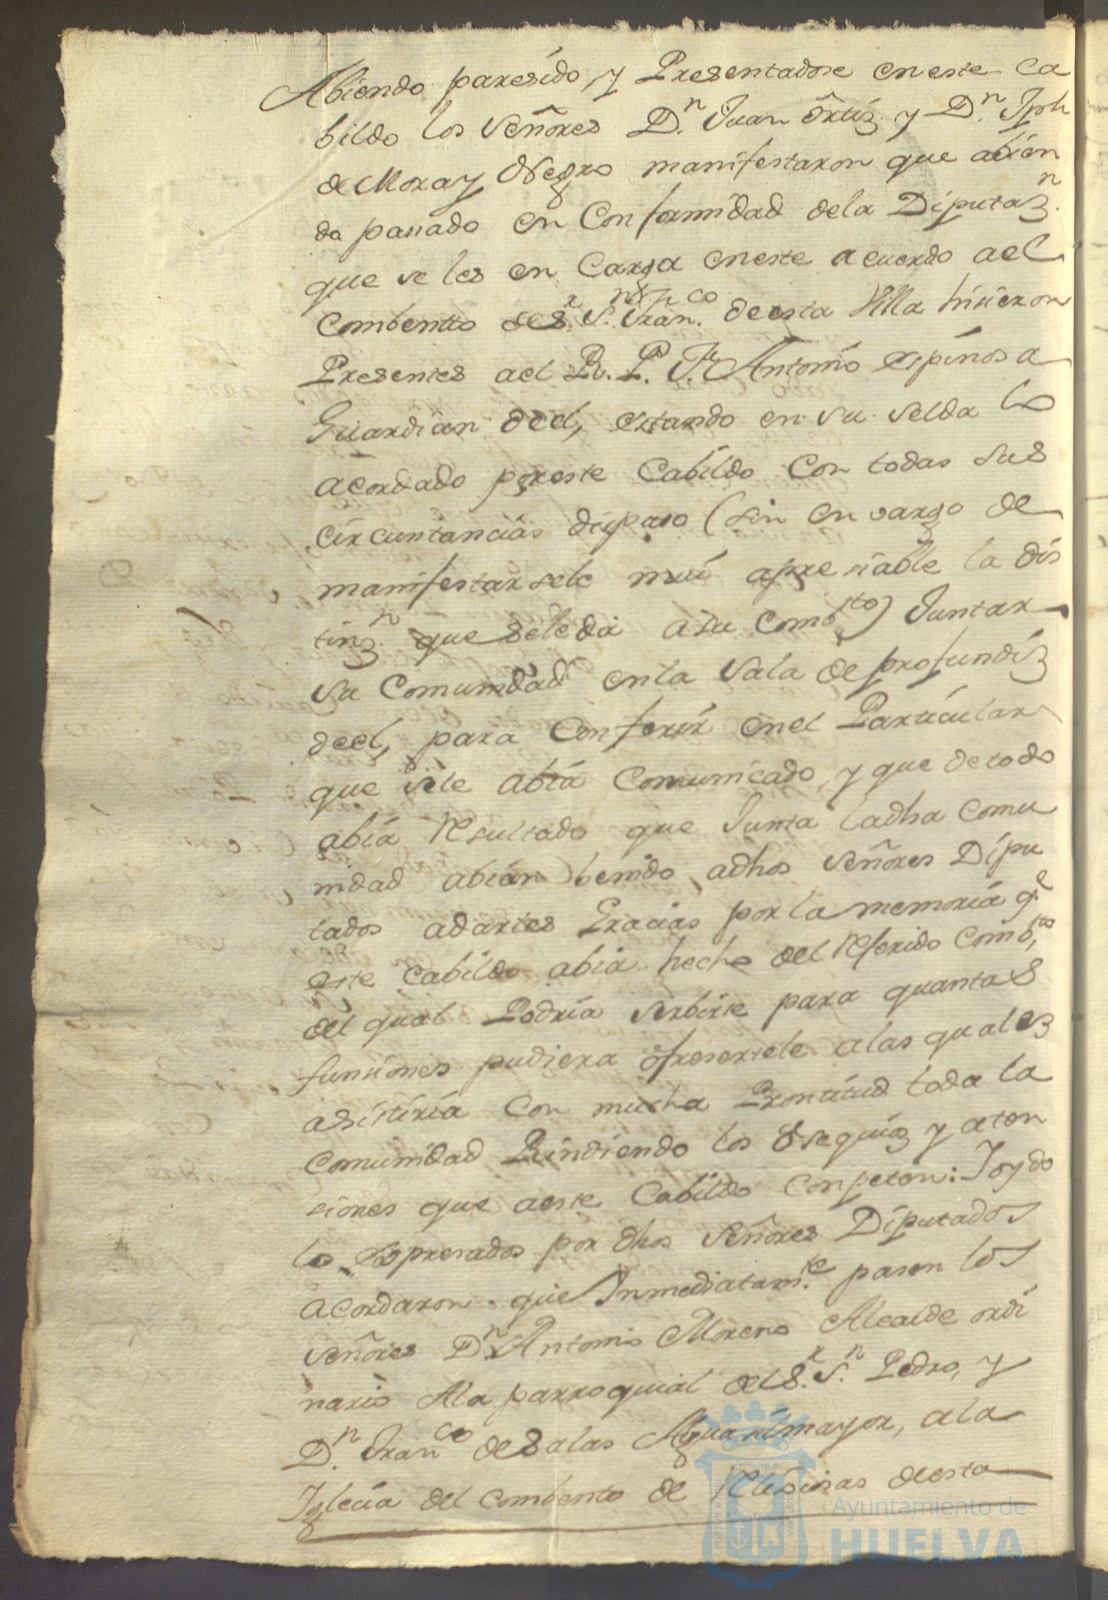 Abiendo paresido, y Presentadose en este Ca
bildo los Señores D.n Juan Ortiz y D.n Jph
de Mora y Negro manifestaron que abien
do pasado en Conformidad dela Diputaz.n
que se les en Carga eneste acuerdo ael
Combento de S.r S.n Fran.co deesta Villa hisieron
Presentes ael R. P. Fr Antonio espinosa
Guardian deel, estando en su selda lo
acordado poreste Cabildo Con todas sus
circuntancias dispuso (sin envargo de
manifestarsele mui apresiable la dis
tinz.n que sele da a su Comb.to) Juntar
su Comunidad enla Sala de profundiz
deel, para Conferir enel Particular
que sele abia Comunicado, y que de todo
abia Resultado que Junta ladha comu
nidad abian benido adhos Señores Dipu
tados adarles Gracias por la memoria q.e
este Cabildo abia hecho del Referido Comb.to
del qual Podria serbirse para quantas
funsiones pudiera ofresersele alas quales
asistiria Con mucha Prontitud toda la
Comunidad Rindiendo los Obsequios y aten
siones que aeste Cabildo Conpeten: Y oydo
lo Expresado por dhos Señores Diputados
acordaron que Inmediatam.te pasen los
Señores D.n Antonio Moreno Alcalde ordi
nario Ala parroquial del S.r S.n Pedro, y
D.n Fran.co de Salas Alguasilmayor, ala
Yglecia del combento de Relixiosas deesta
Ayuntamiento de
HUELVA